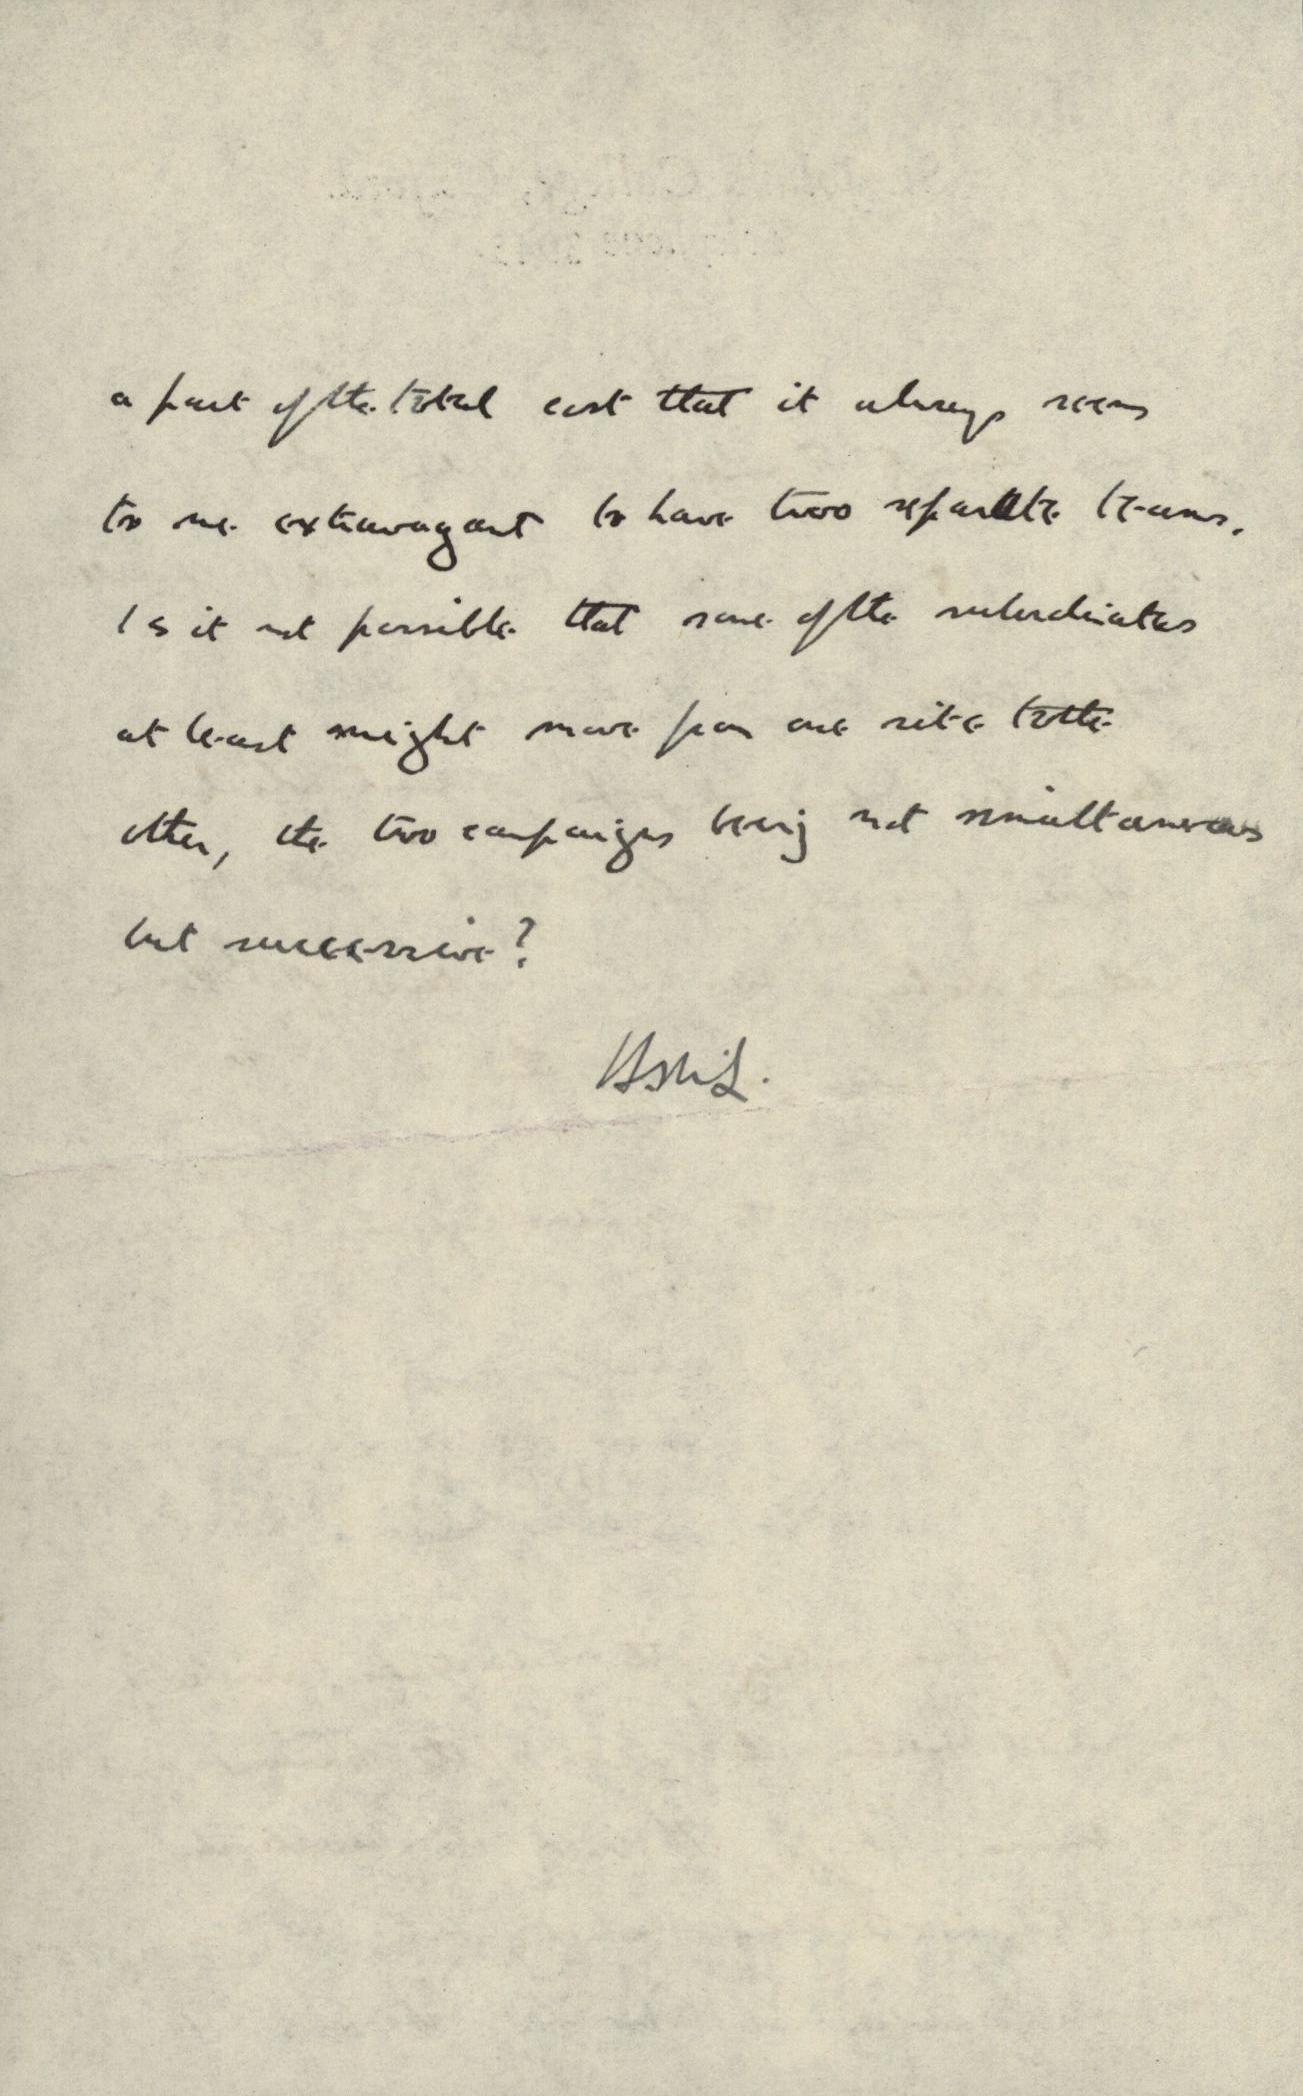 a part of the total cost that it always seems
to me extravagant to have two separate teams.
Is it not possible that some of the subordinates
at least might move from one site to the
other, the two campaigns being not simultaneous
but successive?